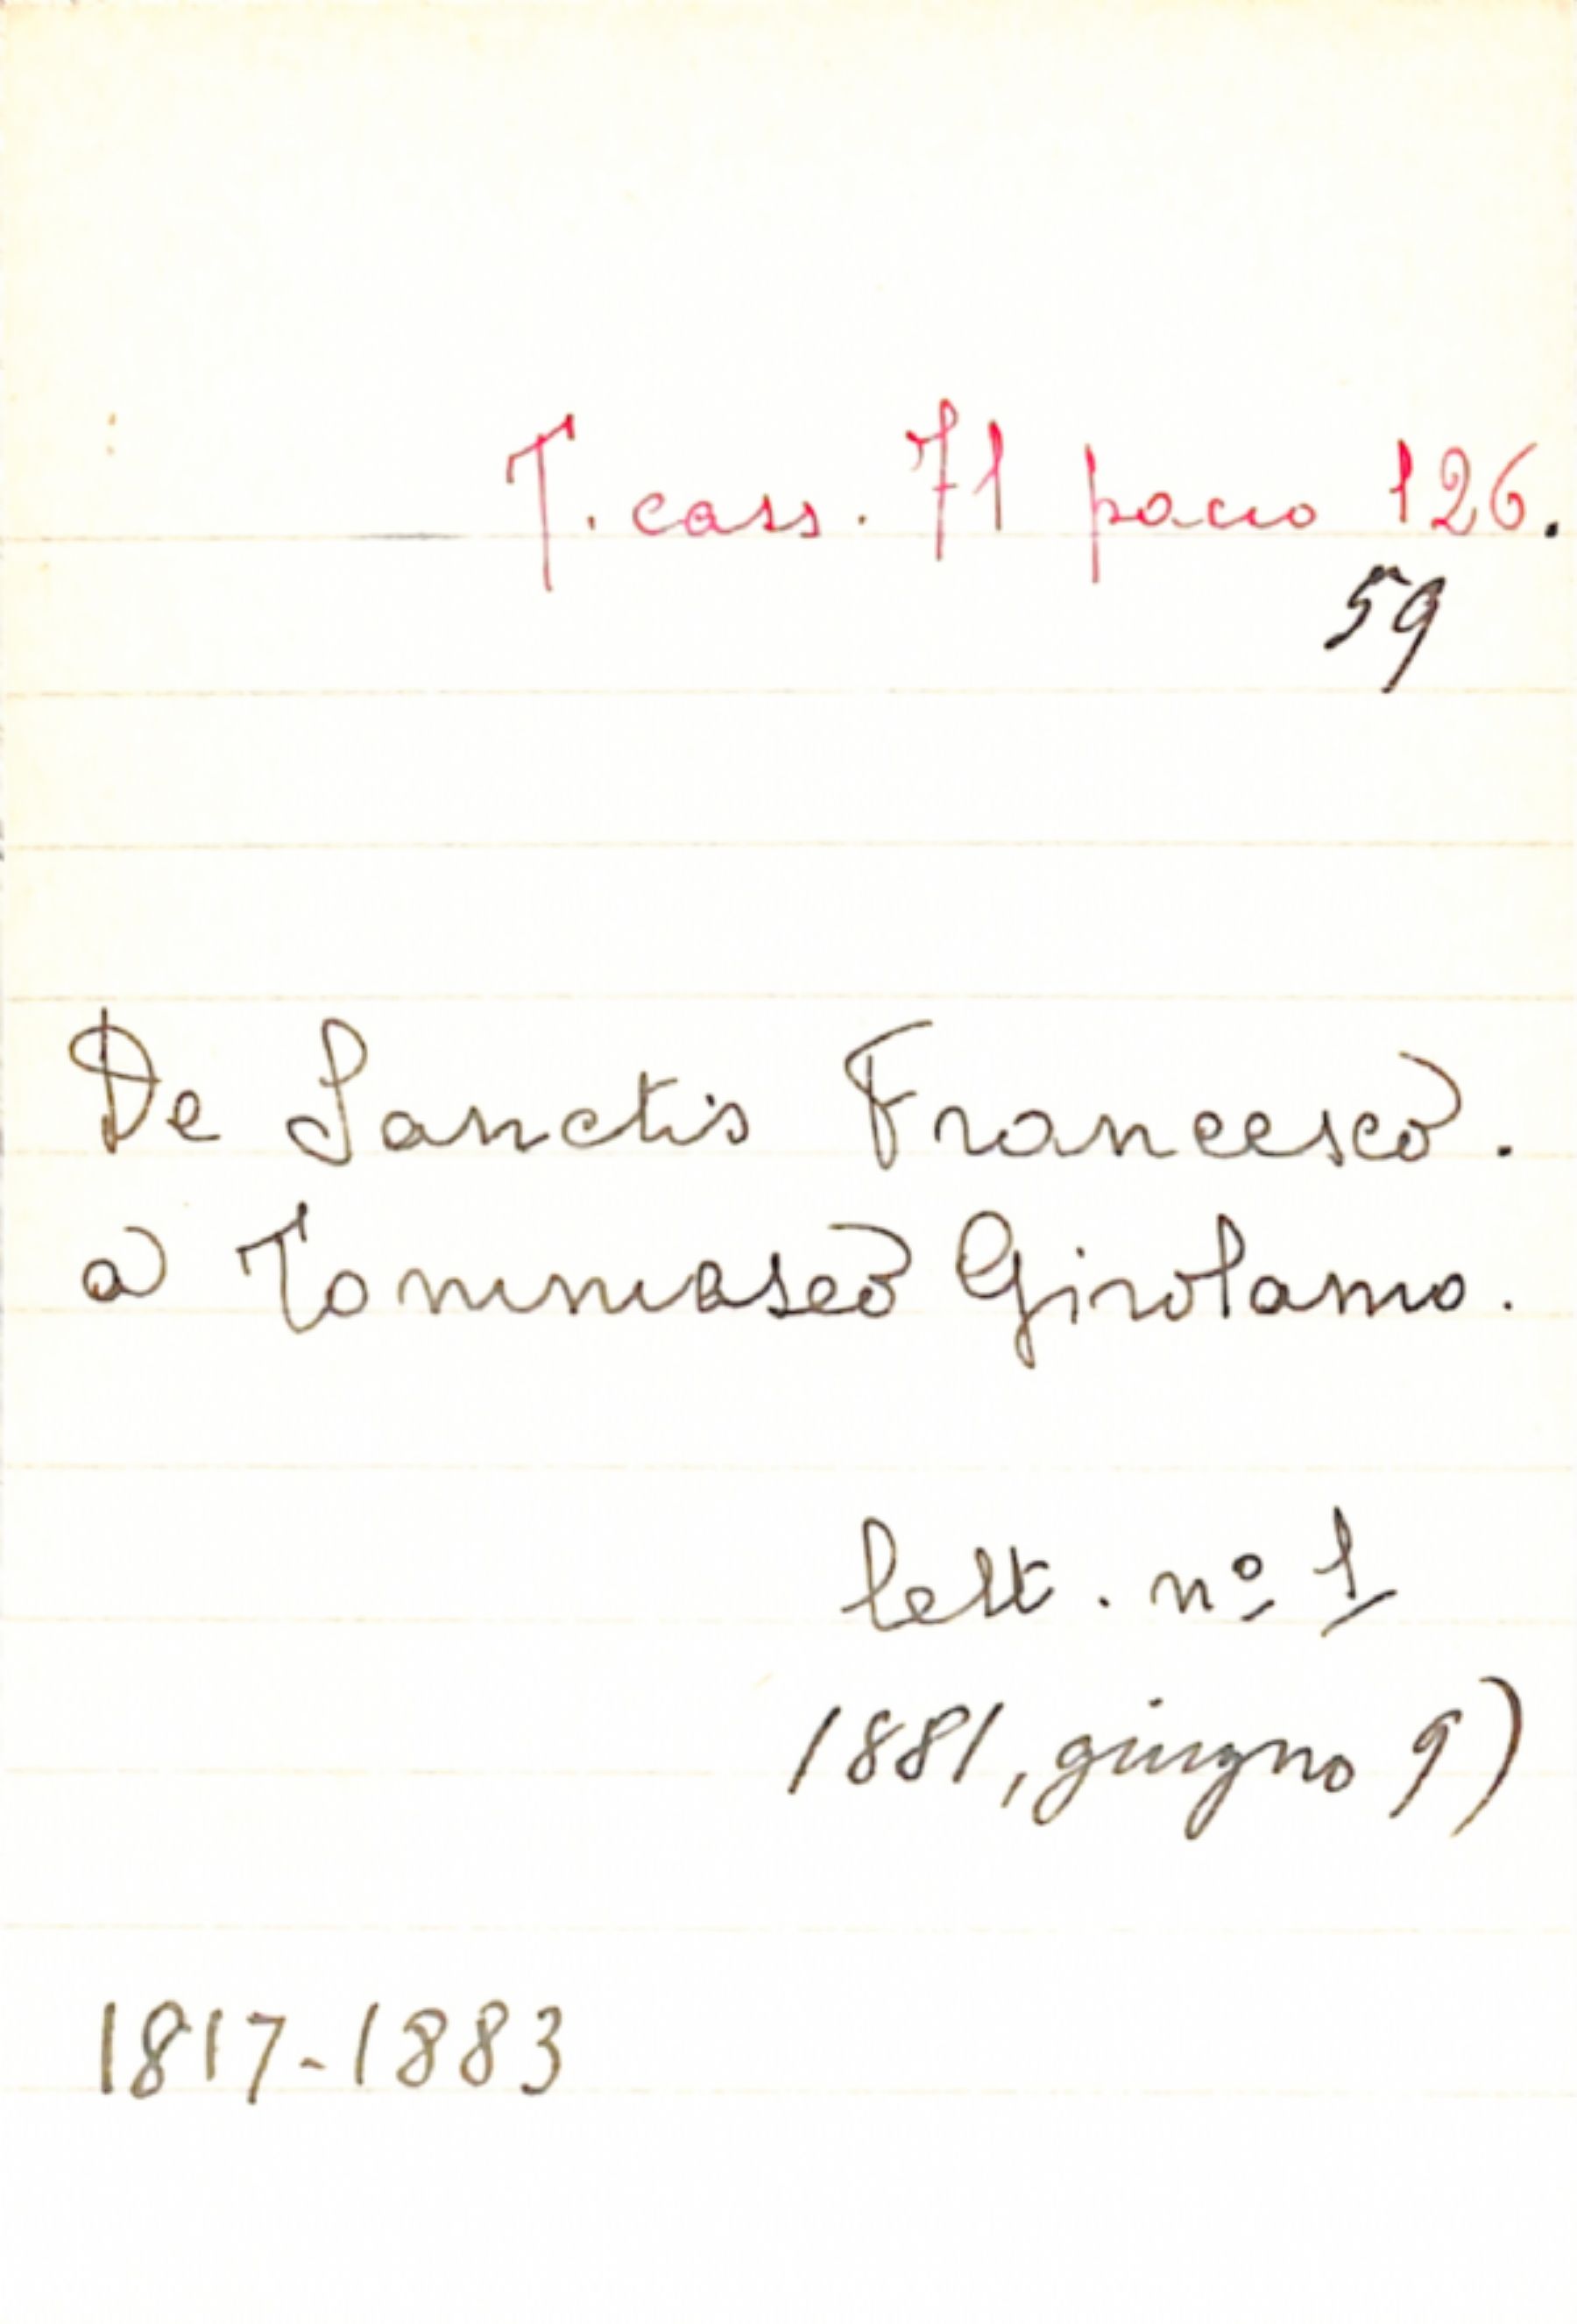 T. cass. 71 pacco 126.
59
De Sanctis Francesco.
a Tommaseo Girolamo.
lett. nº 1
1881, giugno 9)
1817-1883